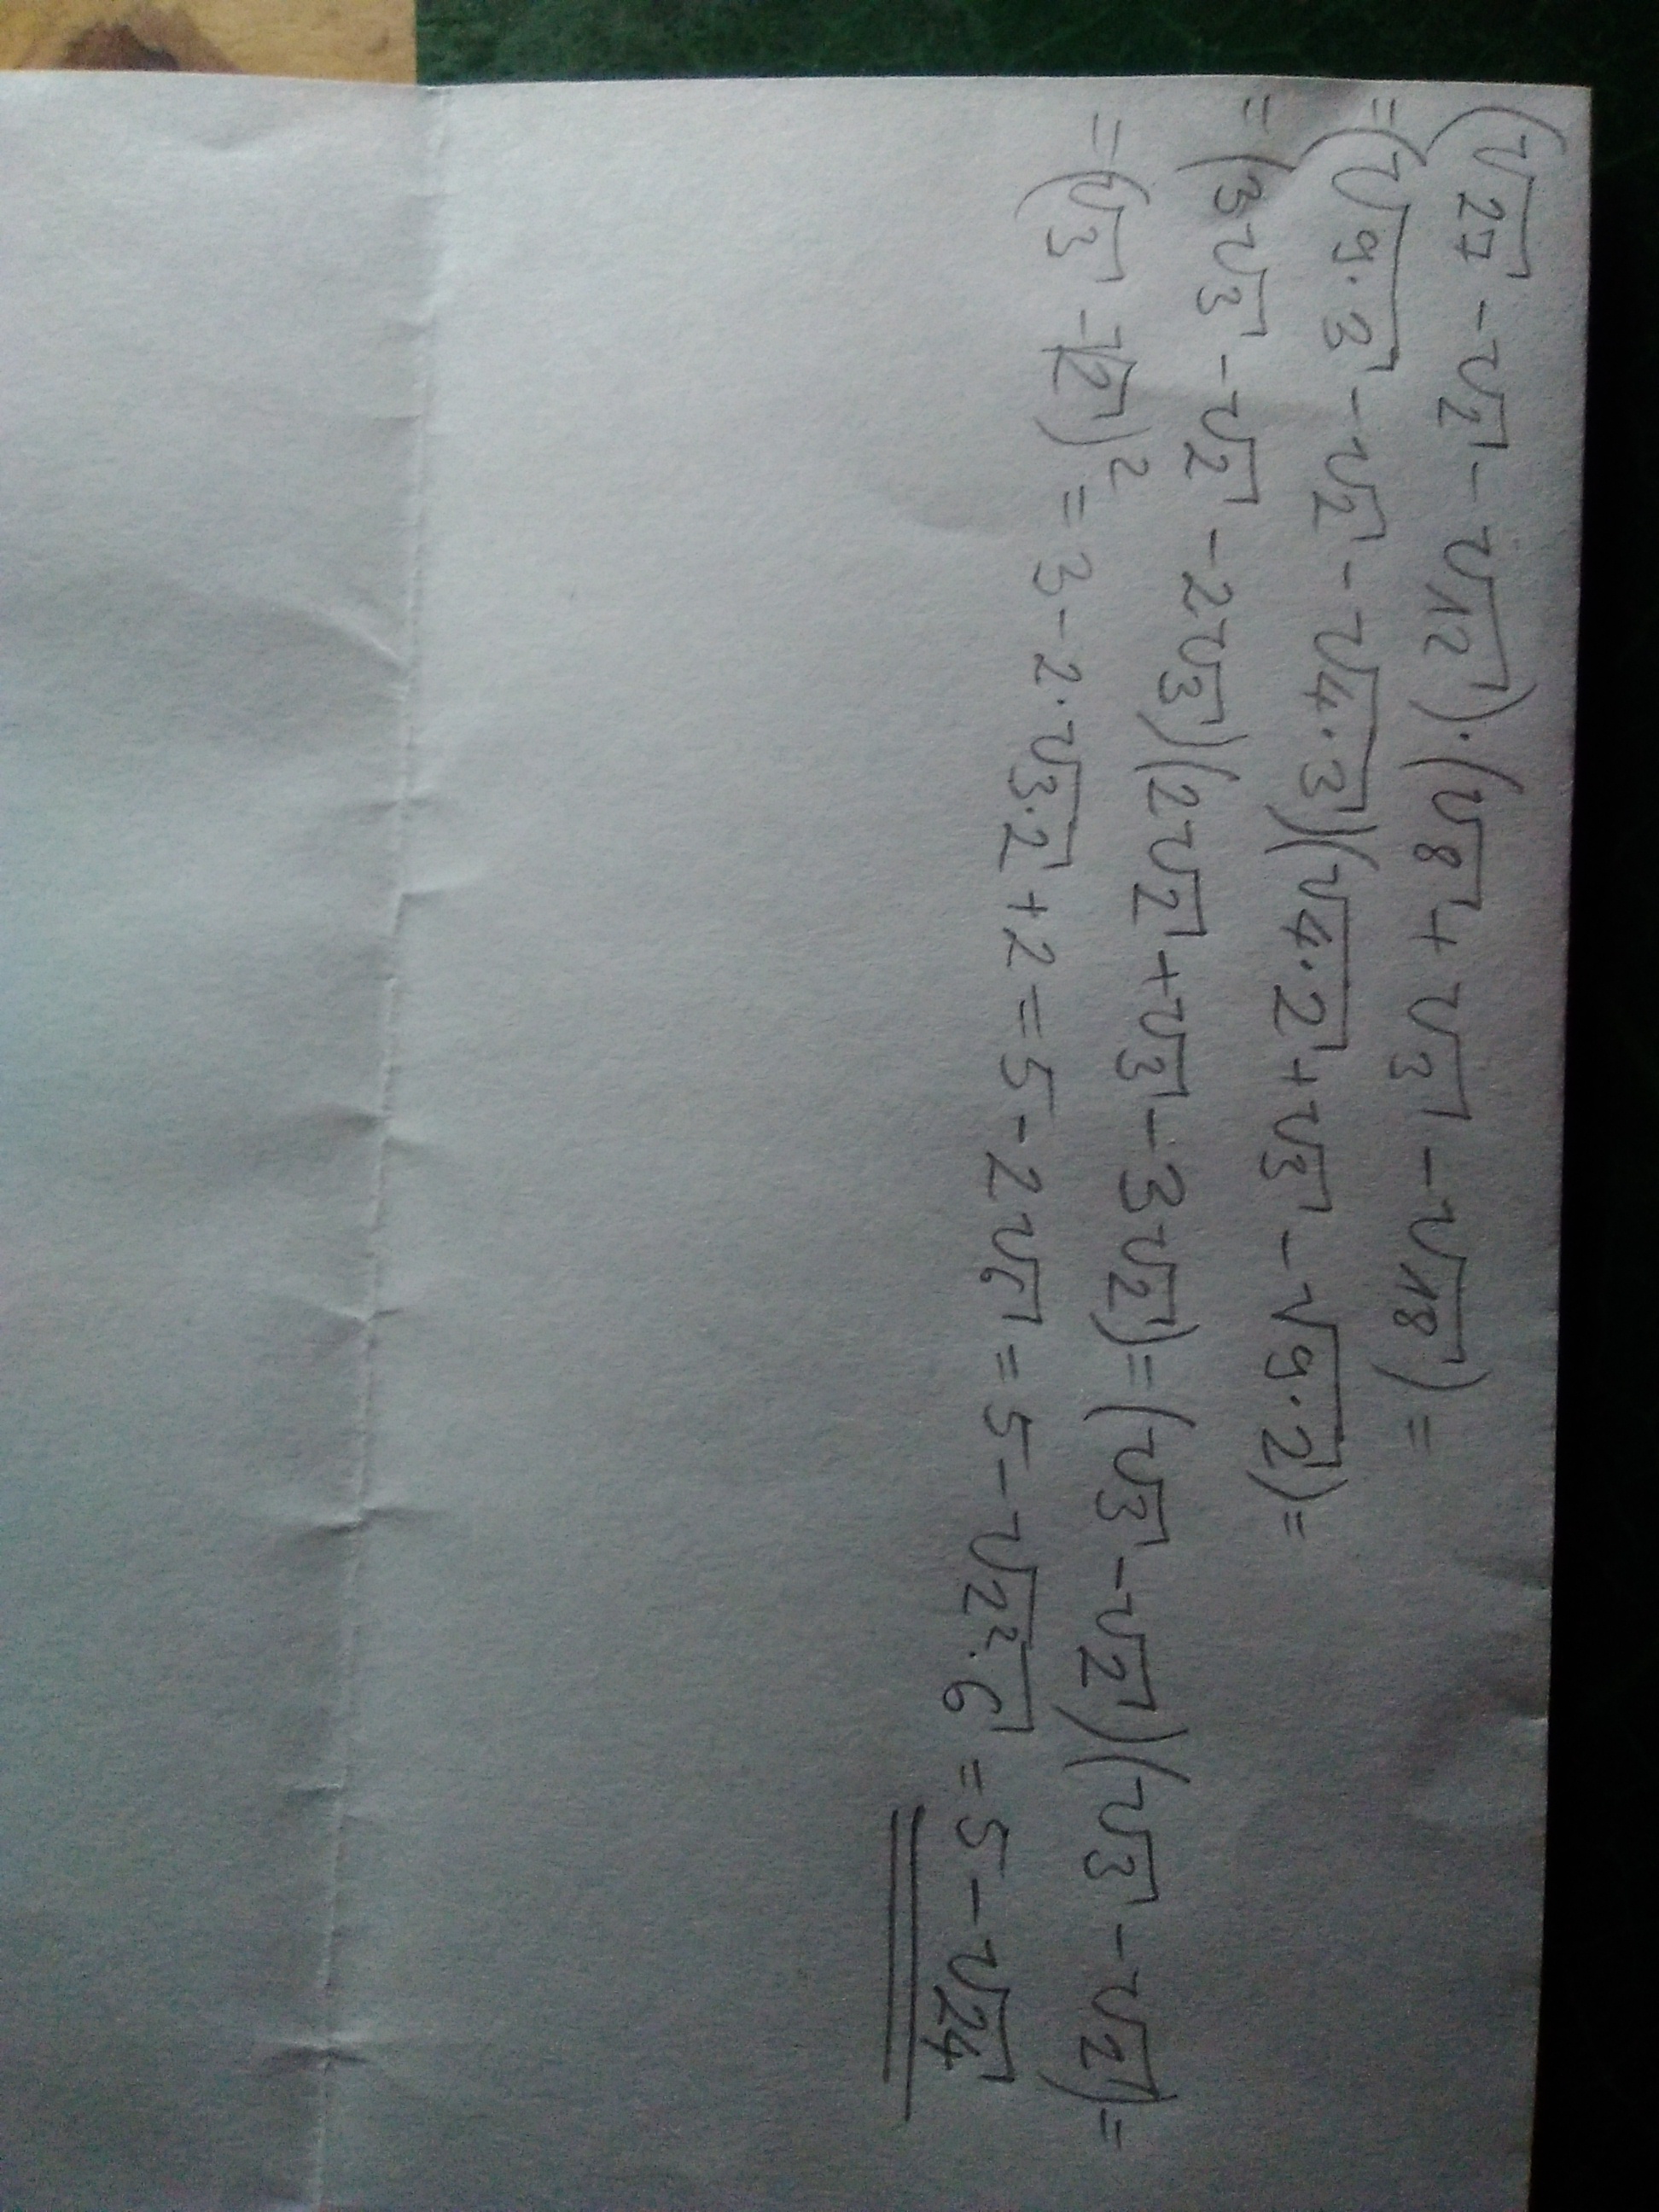 (√27 - √2 - √12)·(√8 + √3 - √18) =
=(√9·3 - √2 - √4·3)(√4·2 + √3 - √9·2)=
= (3√3 - √2 - 2√3)(2√2 + √3 - 3√2) = (√3 - √2)(√3 - √2)=
=(√3 - √2)² = 3 - 2·√3·2 + 2 = 5 - 2√6 = 5 - √2²·6 = 5 - √24